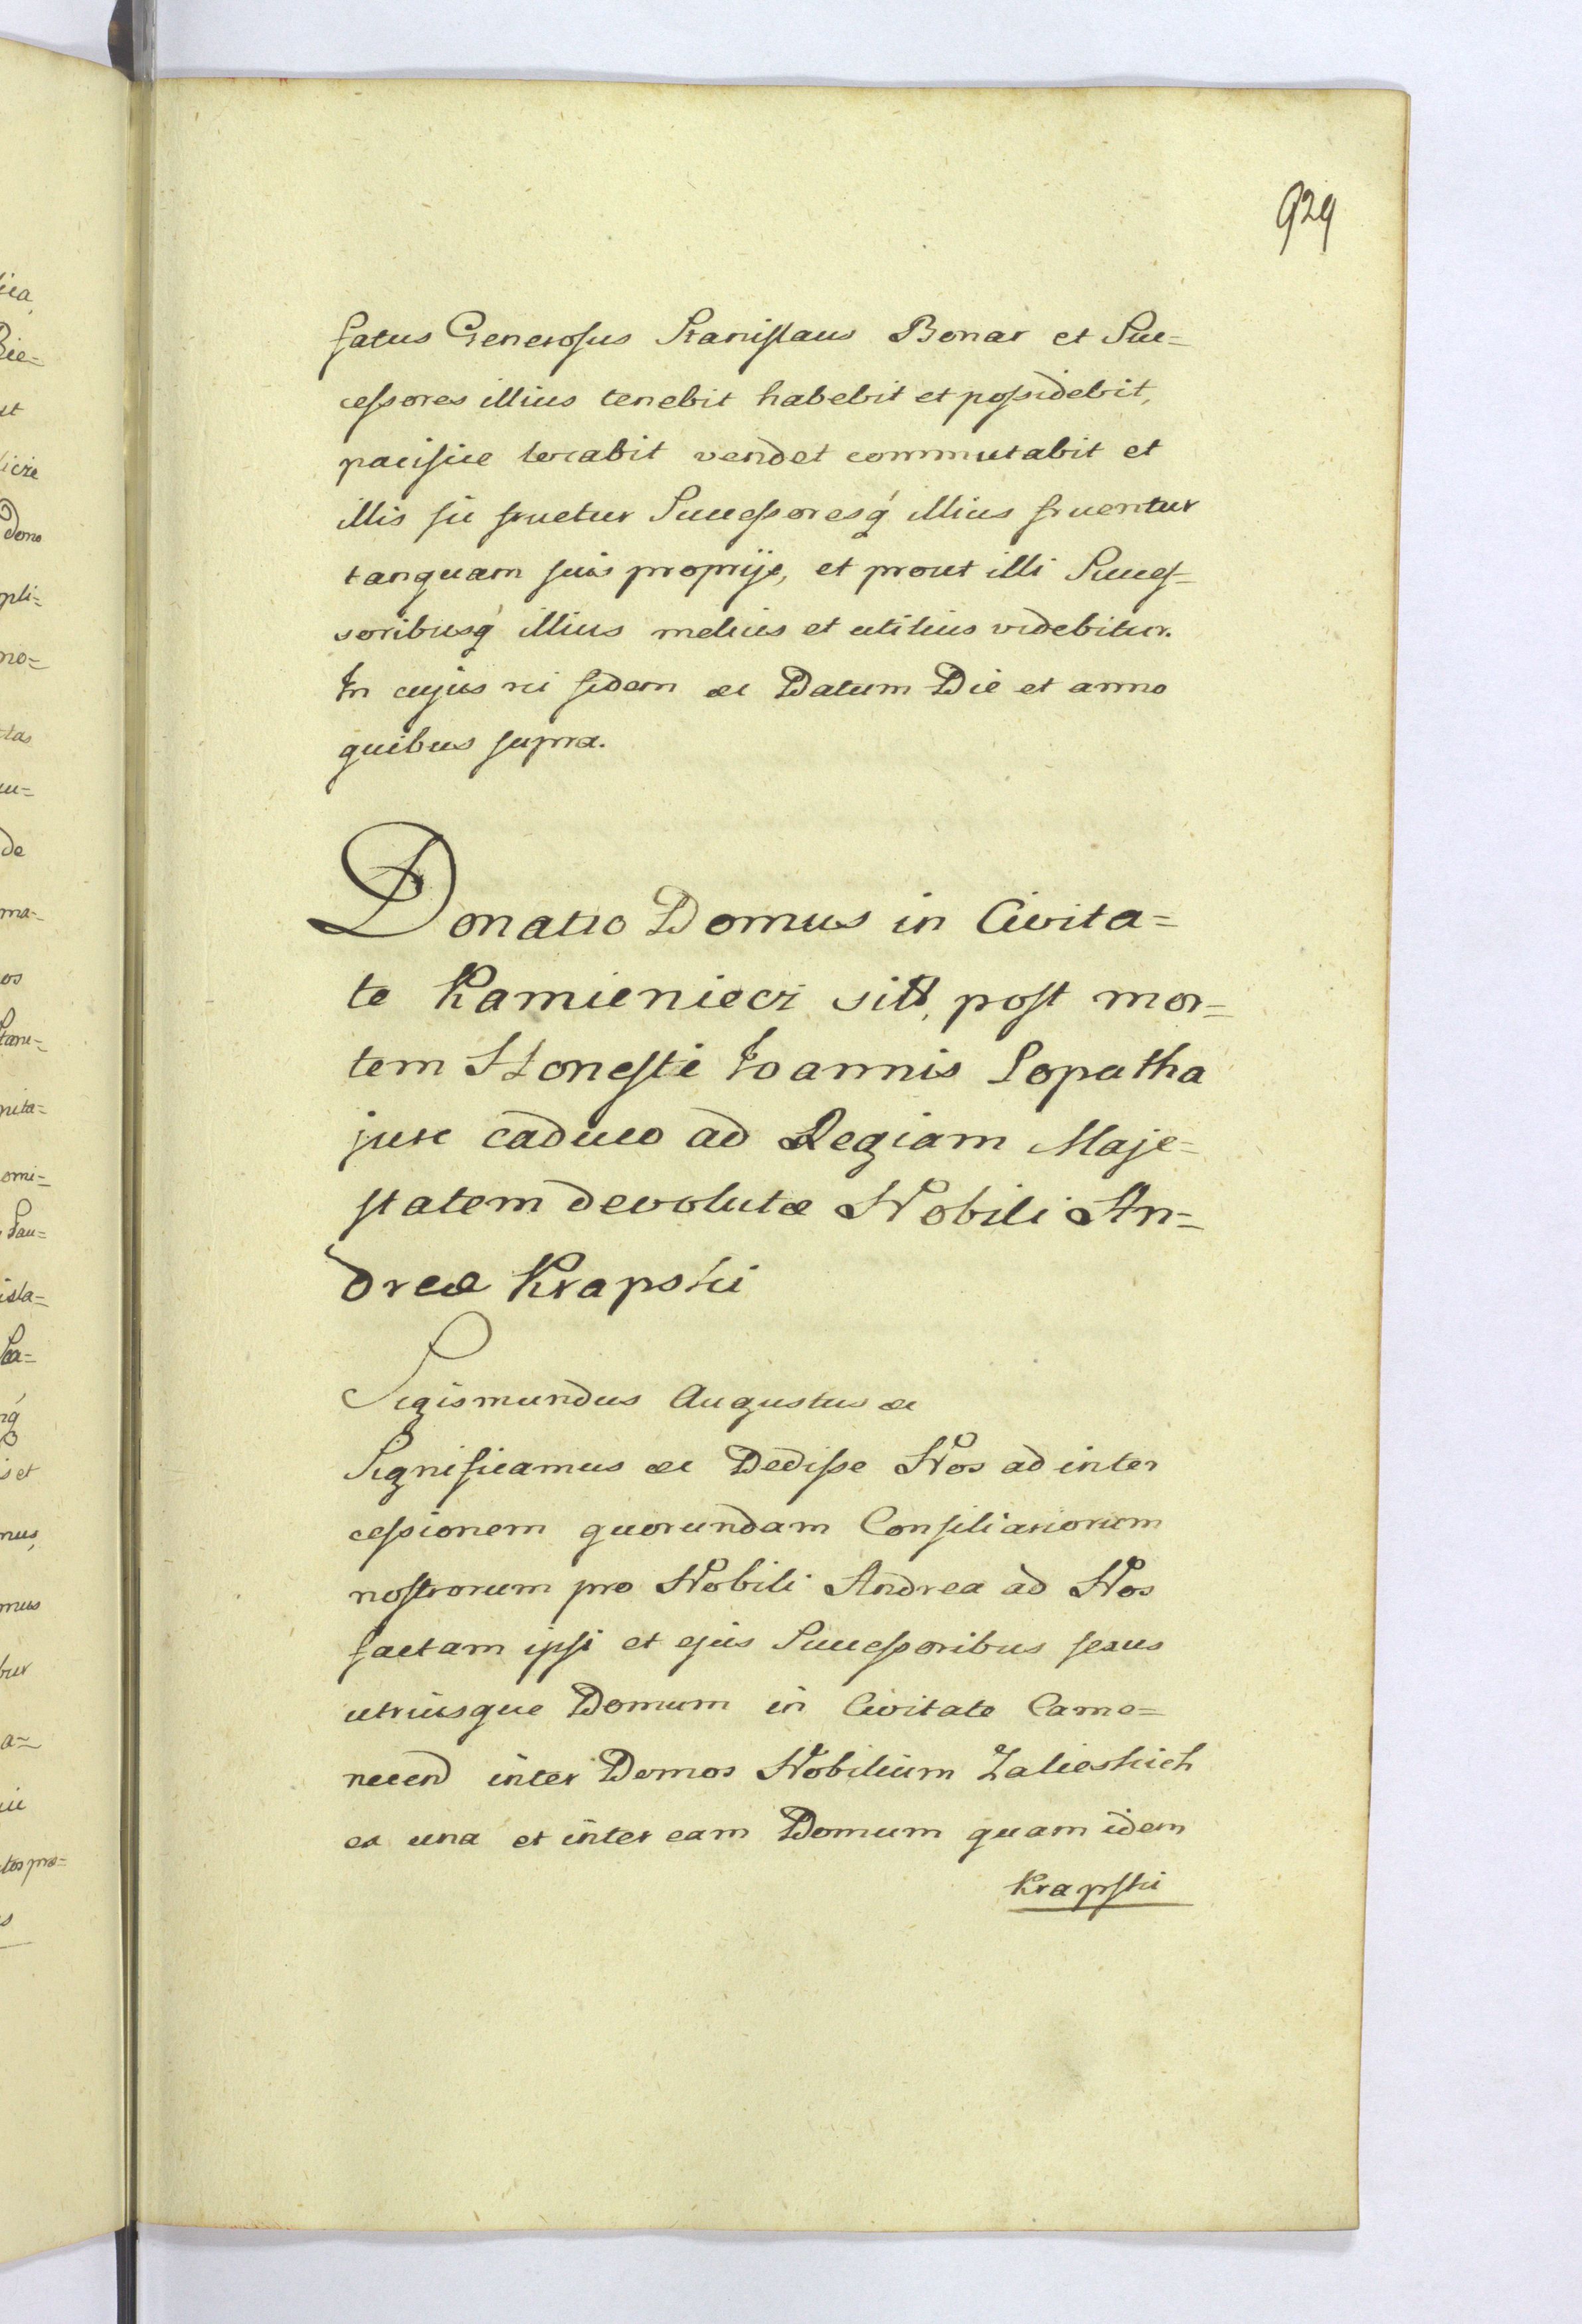 929
fatus Generosus Stanislaus Bonar et Suc=
cessores illius tenebit habebit et possidebit,
pacifice locabit vendet commutabit et
illis sic fruetur Successoresq́ illius fruentur
tanquam suis proprijs, et prout illi Succes=
soribusq́ illius melius et utilius videbitur.
In cujus rei fidem &c Datum Die et anno
quibus supra.
Donatio Domus in Civita=
te Kamieniecz sitæ, post mor=
tem Honesti Joannis Lopatha
jure caduco ad Regiam Maje=
statem devolutæ Nobili An=
dreæ Krapski
Sigismundus Augustus &c
Significamus &c Dedisse Nos ad inter
cessionem quorundam Consiliariorum
nostrorum pro Nobili Andrea ad Nos
factam ipsi et ejus Successoribus sexus
utriusque Domum in Civitate Came=
necend inter Domos Nobilium Zalieskich
ex una et inter eam Domum quam idem
Krapski